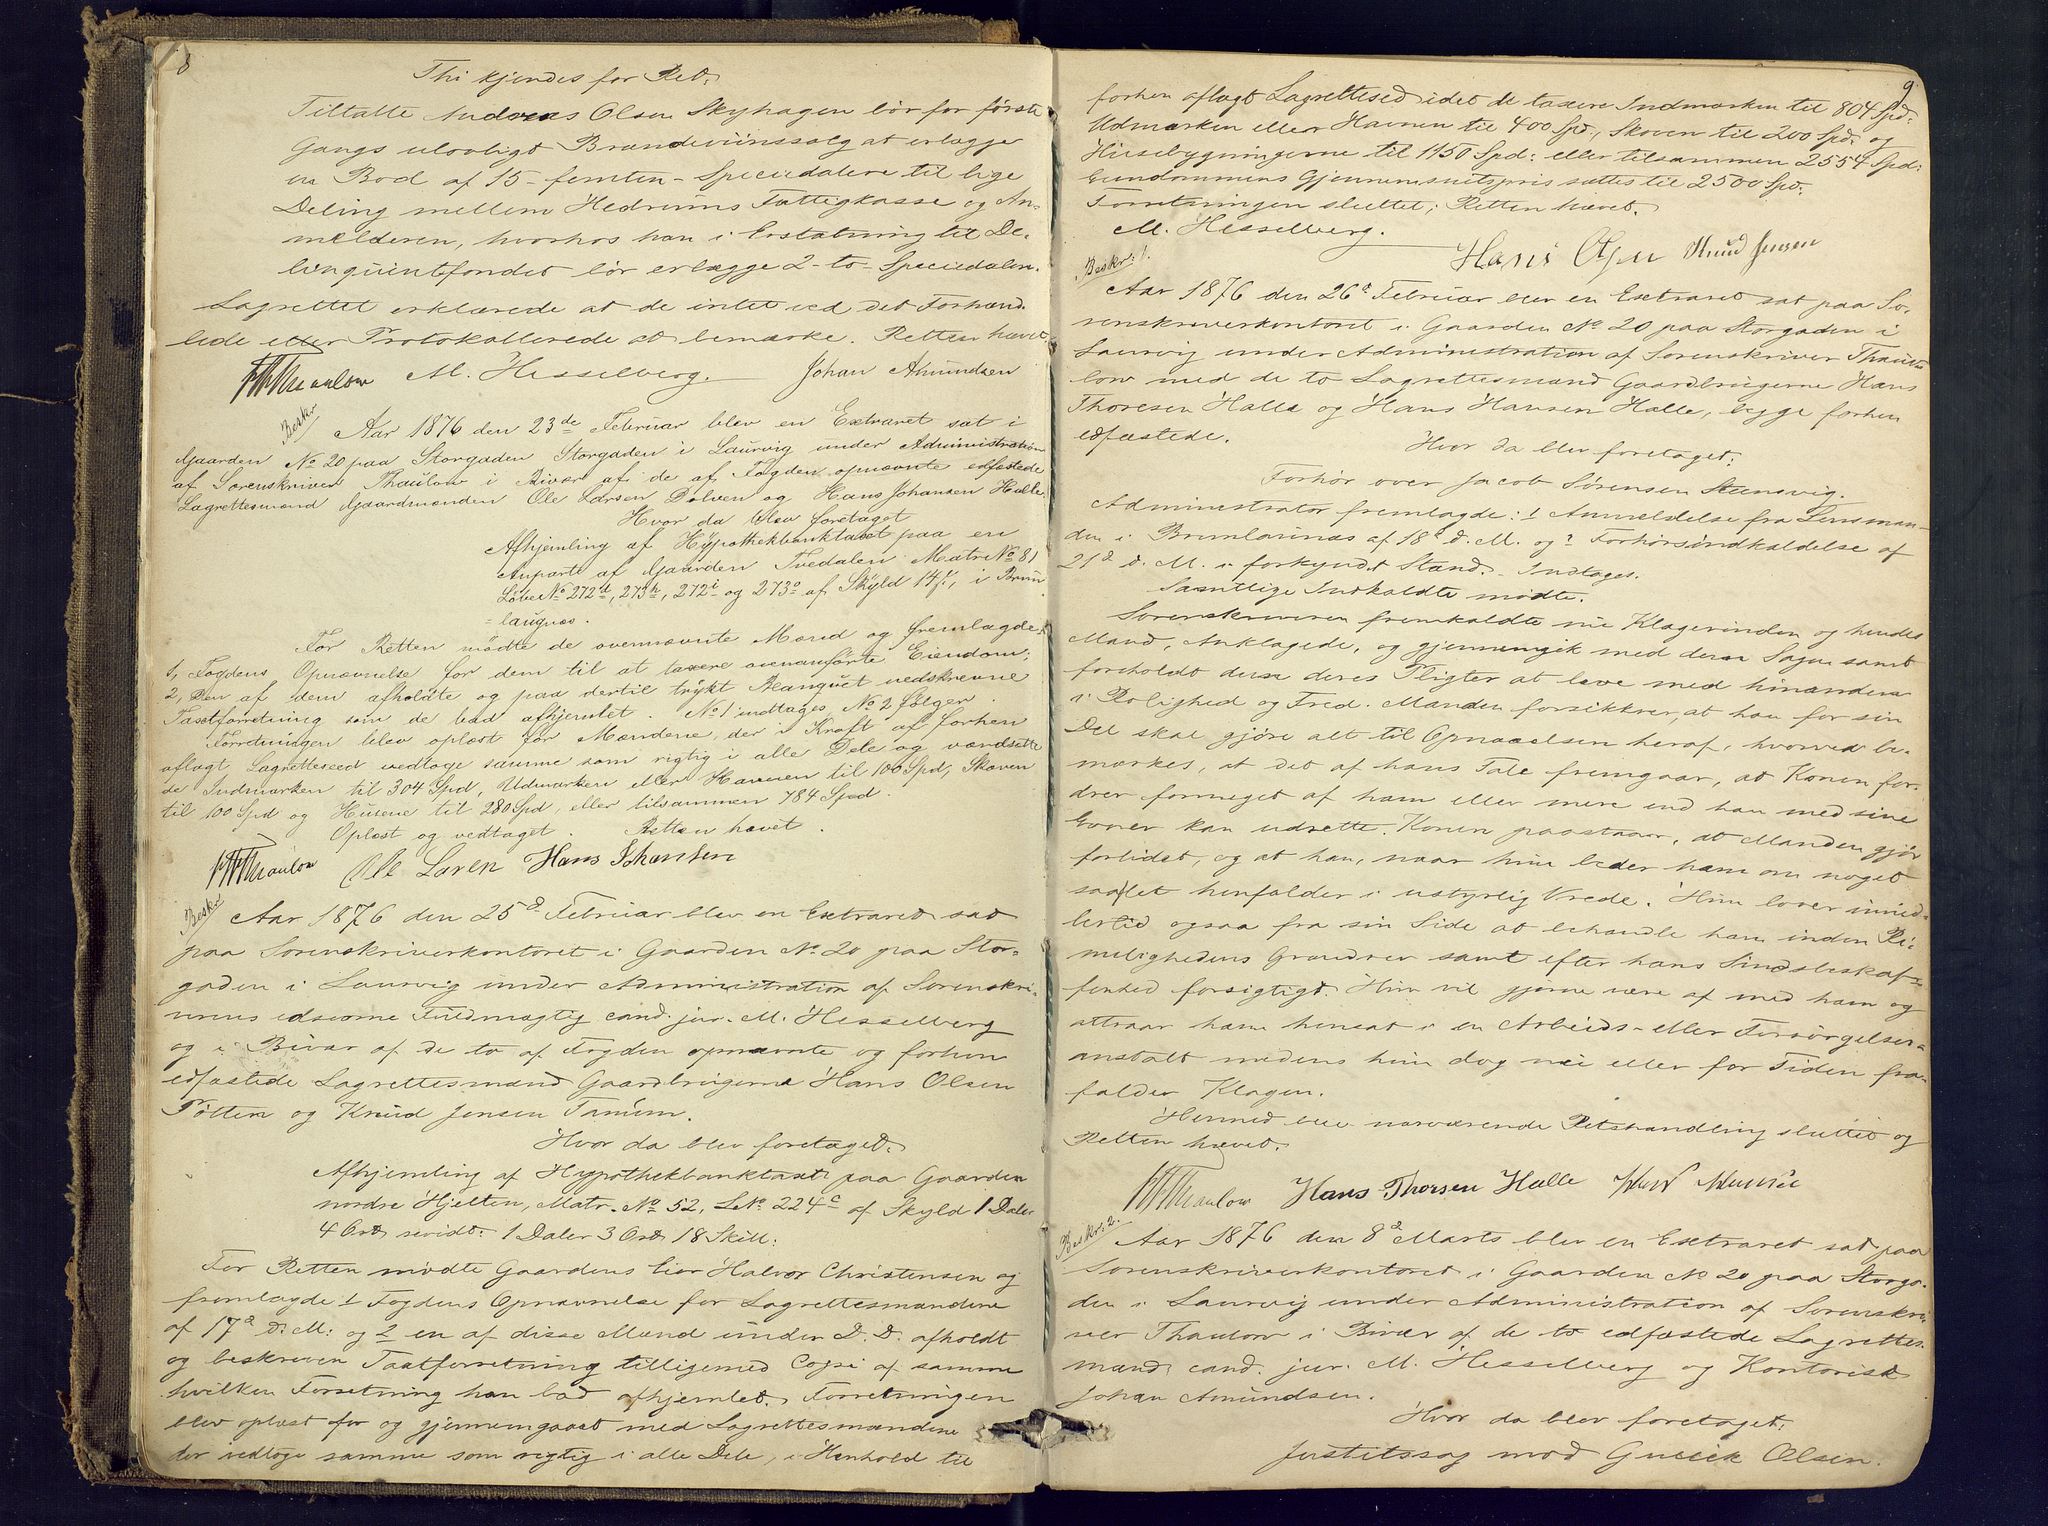 8
Thi kjendes for Ret:
Tiltalte Andreas Olsen Skyhagen bör for første
Gangs ulovligt Brændeviinssalg at erlægge
en Bod af 15 - femten - Speciedalere til lige
Deling mellem Hedrums Fattigkasse og An-
melderen, hvorhos han i Erstatning til De-
linquentfondet bör erlægge 2 - to - Speciedaler.
Lagrettet erklærede at de intet ved det Forhand-
lede eller Protokollerede at bemærke. Retten hævet
Thaulow M. Hesselberg. Johan Amundsen
Beskr
Aar 1876 den 23de Februar blev en Extraret sat i
Gaarden No 20 paa Storgaden Storgaden i Laurvig under Administration
af Sorenskriver Thaulow i Bivær af de af Fogden opnævnte edfæstede
Lagrettesmænd Gaardmændene Ole Larsen Dolven og Hans Johansen Halle.
Hvor da blev foretaget
Afhjemling af Hypothekbanktaxt paa en
Anpart af Gaarden Tvedalen Matr No 81
Løbe No 272d, 273h, 272i og 273o af Skyld 14 f, i Brun
= laugnæs.
For Retten mödte de ovennævnte Mænd og fremlagde:
1, Fogdens Opnævnelse for dem til at taxere ovenanførte Eiendom;
2, Den af dem afholdte og paa dertil trykt Blanquet nedskrevne
Taxtforretning som de bad afhjemlet. No 1 indtages, No 2 følger.
Forretningen blev oplæst for Mændene, der i Kraft af forhen
aflagt Lagretteseed vedtoge samme som rigtig i alle Dele og værdsætte
de Indmarken til 304 Spd, Udmarken eller Havnen til 100 Spd, Skoven
til 100 Spd og Husene til 280 Spd, eller tilsammen 784 Spd.
Oplæst og vedtaget. Retten hævet.
Thaulow Ole Larsen Hans Johansen
Beskr
Aar 1876 den 25d Februar blev en Extraret sat
paa Sorenskriverkontoret i Gaarden No 20 paa Stor-
gaden i Laurvig under Administration af Sorenskri-
verens edsvorne Fuldmægtig cand. jur. M. Hesselberg
og i Bivær af de to af Fogden opnævnte og forhen
edfæstede Lagrettesmænd Gaardbrugerne Hans Olsen
Tötten og Knud Jensen Tanum.
Hvor da blev foretaget:
Afhjemling af Hypothekbanktaxt paa Gaarden
nordre Hjelten, Matr. No 52, L.No 224c af Skyld 1 Daler
4 Ort revidt: 1 Daler 3 Ort 18 Skill:
For Retten mödte Gaardens Eier Halvor Christensen og
fremlagde 1 Fogdens Opnævnelse for Lagrettesmændene
af 17d d: M: og 2 en af disse Mænd under D. D. afholdt
og beskreven Taxtforretning tilligemed Copi af samme
hvilken Forretning han bad afhjemlet. Forretningen
blev oplæst for og gjennemgaaet med Lagrettesmændene
der vedtoge samme som rigtig i alle Dele, i Henhold til
9.
forhen aflagt Lagretteed idet de taxere Indmarken til 804 Spd:
Udmarken eller Havnen til 400 Spd:, Skoven til 200 Spd: og
Huusebygningerne til 1150 Spd: eller tilsammen 2554 Spd:
Eiendommens Gjennemsnitspris sættes til 2500 Spd:
Forretningen sluttet; Retten hævet.
M. Hesselberg. Hans Olsen Knud Jensen
Beskr: 1.
Aar 1876 den 26d Februar blev en Extraret sat paa So-
renskriverkontoret i Gaarden No 20 paa Storgaden i
Laurvig under Administration af Sorenskriver Thau-
low med de to Lagrettesmænd Gaardbrugerne Hans
Thoresen Halle og Hans Hansen Halle, begge forhen
edfæstede.
Hvor da blev foretaget:
Forhör over Jacob Sörensen Stensvig.
Administrator fremlagde: 1 Anmeldelse fra Lensman-
den i Brunlaunæs af 18d d. M. og 2 Forhörsindkaldelse af
21d d. M. i forkyndt Stand. Indtages.
Samtlige Indkaldte mødte.
Sorenskriveren fremkaldte nu Klagerinden og hendes
Mand, Anklagede, og gjennemgik med dem Sagen samt
foreholdt dem deres Pligter at leve med hinanden
i Rolighed og Fred. Manden forsikkrer, at han for sin
Del skal gjöre alt til Opnaaelsen heraf, hvorved be-
mærkes, at det af hans Tale fremgaar, at Konen for-
drer formeget af ham eller mere end han med sine
Evner kan udrette. Konen paastaar, at Manden gjör
forlidet, og at han, naar hun beder ham om noget
saa let henfalder i ustyrlig Vrede. Hun lover imid-
lertid ogsaa fra sin Side at behandle ham inden Ri-
melighedens Grændser samt efter hans Sindsbeskaf-
fenhed forsigtigt. Hun vil gjerne være af med ham og
attraar ham hensat i en Arbeids- eller Forsörgelses-
anstalt medens hun dog nu eller for Tiden fra-
falder Klagen.
Hermed blev nærværende Retshandling sluttet og
Retten hævet.
Thaulow Hans Thorsen Halle
Beskr: 2.
Aar 1876 den 8d Marts blev en Extraret sat paa
Sorenskriverkontoret i Gaarden No 20 paa Storga-
den i Laurvig under Administration af Sorenskri-
ver Thaulow i Bivær af de to edfæstede Lagrettes-
mænd cand. jur. M. Hesselberg og Kontorist
Johan Amundsen.
Hvor da blev foretaget:
Justitssag mod Gullik Olsen.